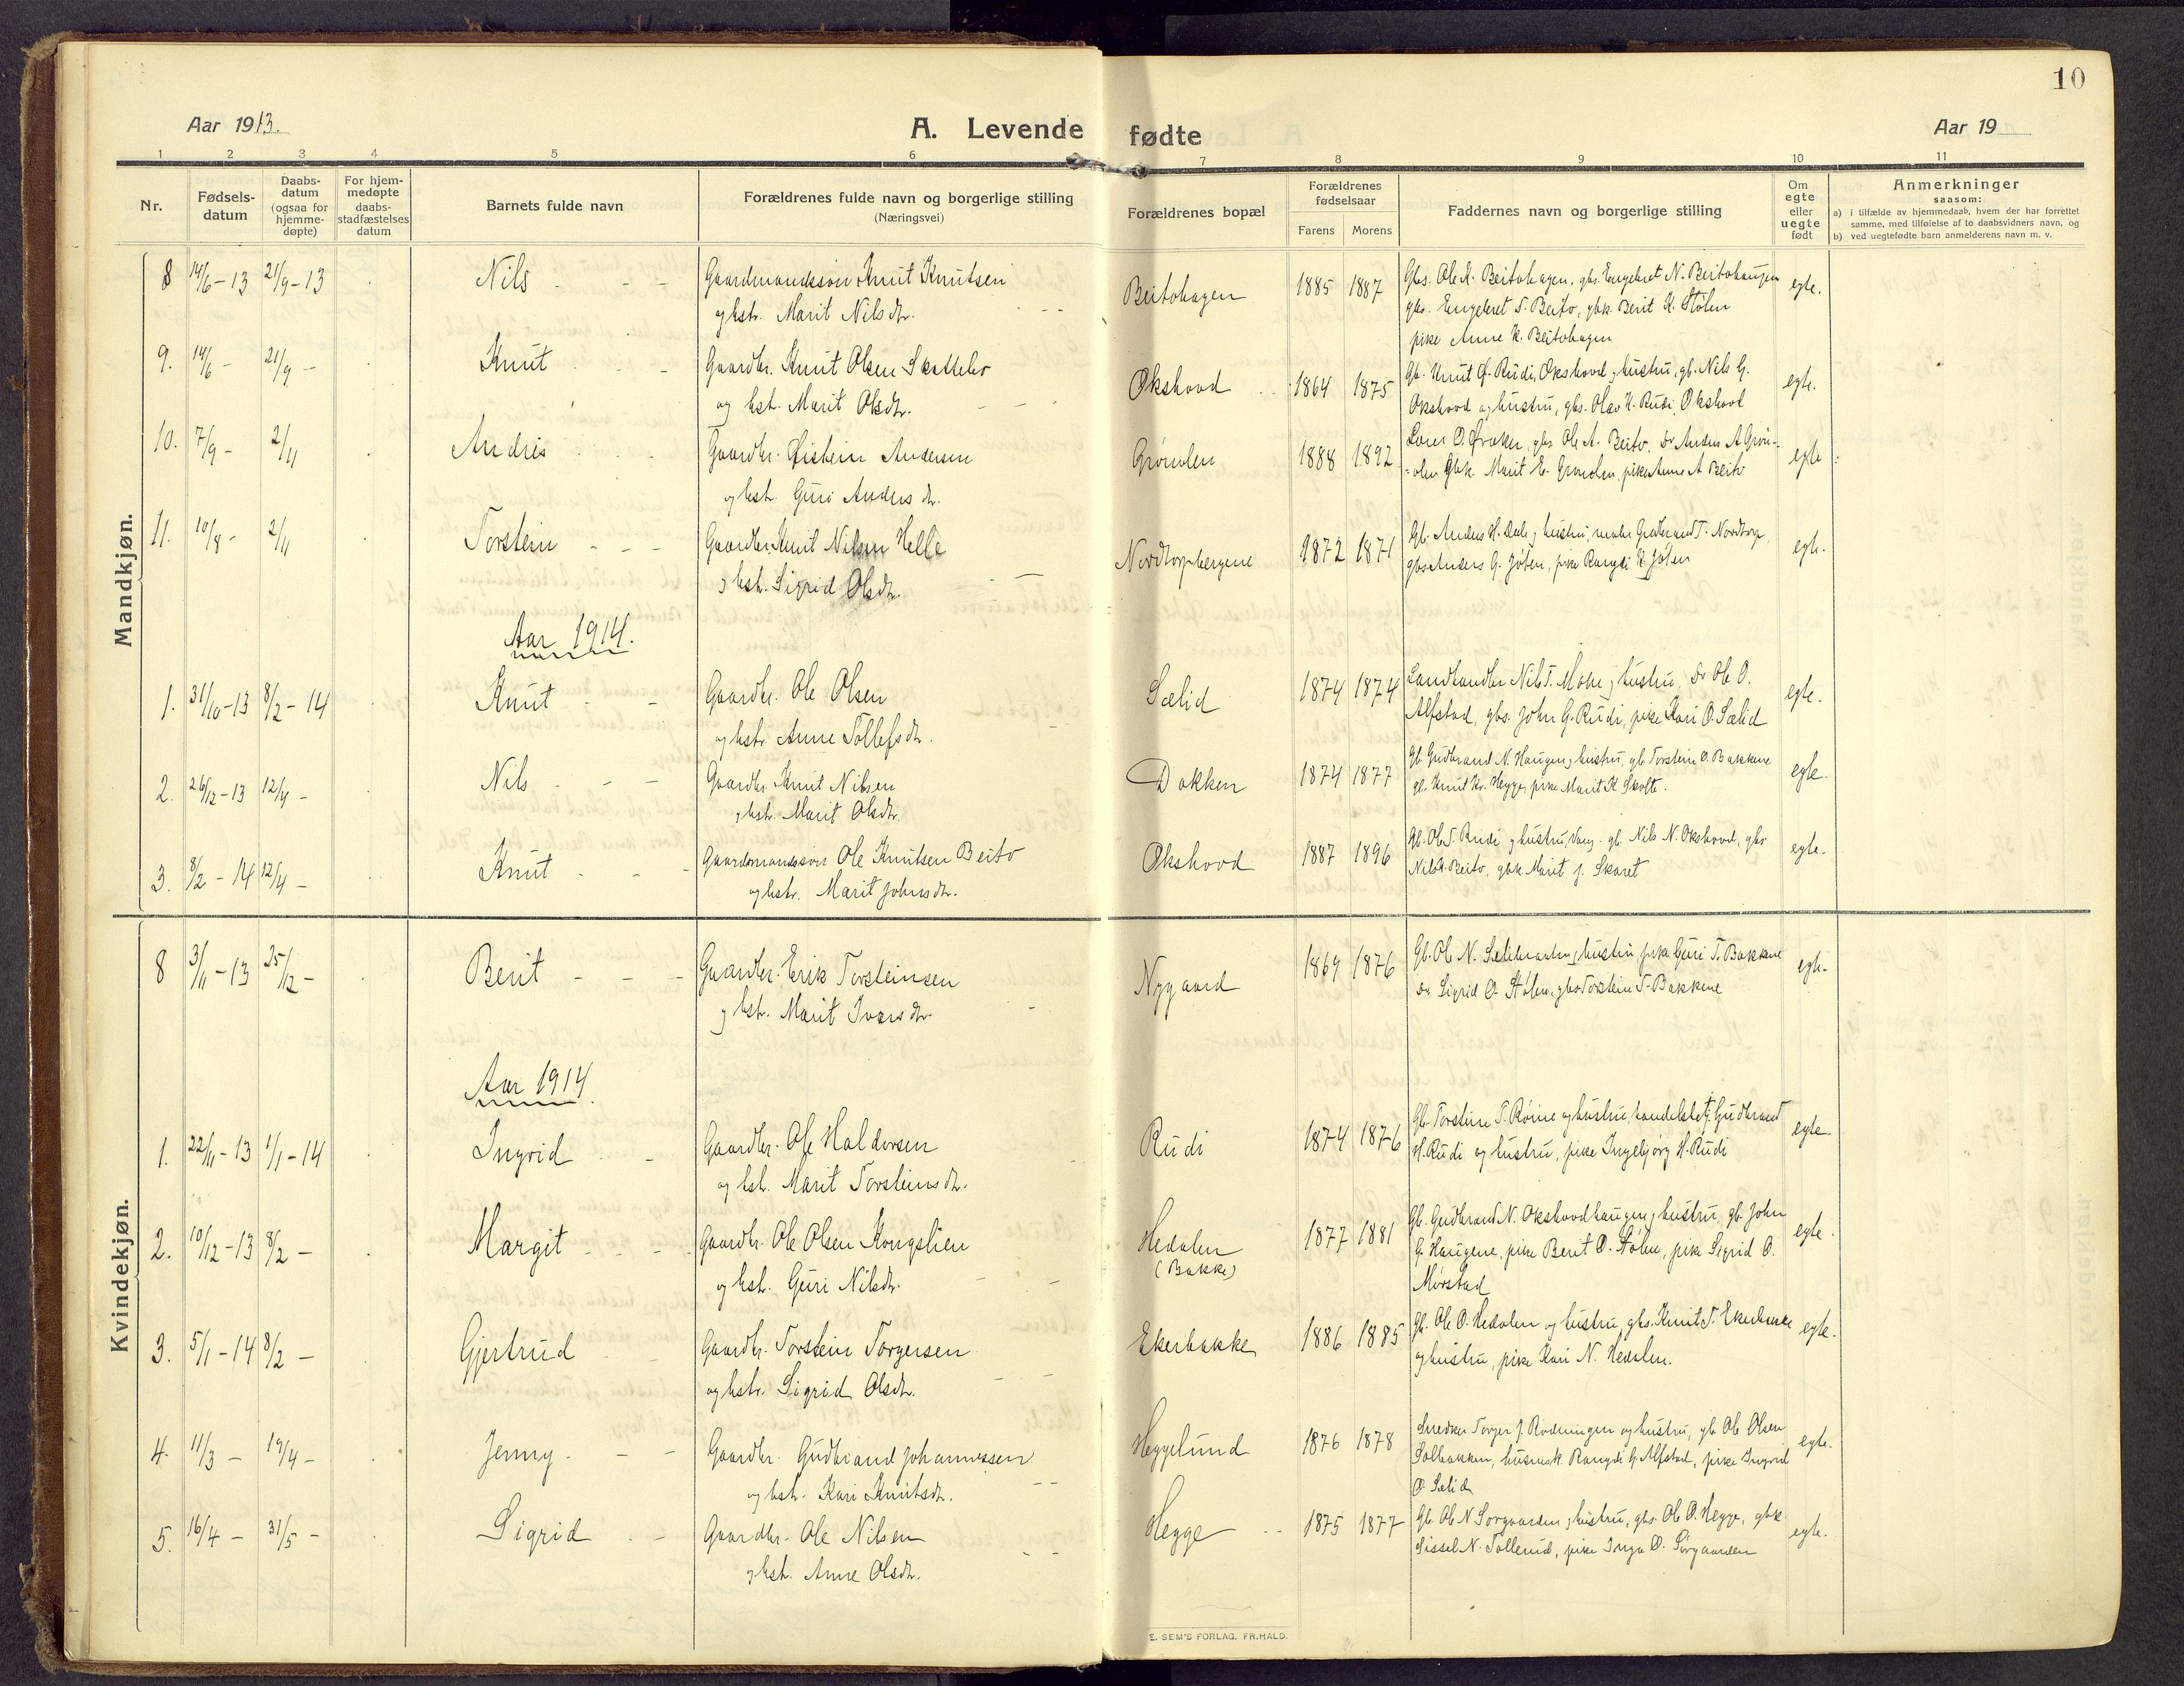 10
Aar 1913.
A. Levende fødte
Aar 19
1 2 3 4 5 6 7 8 9 10 11
Nr.
Fødsels-
datum
Daabs-
datum
(ogsaa for
hjemme-
døpte)
For hjem-
medøpte
daabs-
stadfæstelses
datum
Barnets fulde navn
Forældrenes fulde navn og borgerlige stilling
(Næringsvei)
Forældrenes bopæl
Forældrenes
fødselsaar
Farens Morens
Faddernes navn og borgerlige stilling
Om
egte
eller
uegte
født
Anmerkninger
saasom:
a) i tilfælde av hjemmedaab, hvem der har forrettet
samme, med tilføielse af to daabsvidners navn, og
b) ved uegtefødte barn anmelderens navn m. v.
Mandkjøn.
8 14/6-13 21/9-13 Nils Gaardmandssøn Knut Knutsen Beitohagen 1885 1887 Gbs. Ole K. Beitohagen, gbs. Engebret N. Beitohaugen egte.
og hst. Marit Nilsdtr. gbs. Engebret T. Beito, gbk. Berit K. Stølen
pike Anne K. Beitohagen
9. 14/6 - 21/9 - Knut Gaardbr. Knut Olsen Skattebo Økshovd 1864 1875 Gb. Knut O. Rudi, Økshovd og hustru, gb. Nils G. egte.
og hst. Marit Olsdtr. Økshovd og hustru, gbs. Olav K. Rudi, Økshovd
10. 7/9 - 2/11 Andris Gaardbr. Øistein Andersen Grønolen 1888 1892 gbs Ole A. Beito, Anders A Grøn- egte
og hst. Guri Andersdtr. =olen Gbk. Marit E. Grønolen, pike Anne A Beito
11. 10/8 - 2/11 Torstein Gaardbr. Knut Nilsen Helle Nordtorpbergene 1872 1871 Gb. Anders H. og hustru, Gudbrand T. Nordtorp, egte.
og hst. Sigrid Olsdtr. gbs Anders G. Jøten, pike Rangdi K. Jøten
Aar 1914.
1. 31/10-13 8/2-14 Knut Gaardbr. Ole Olsen Sælid 1874 1874 Landhandler Nils T. Mohn og hustru, Ole O. egte.
og hst. Anne Tollefsdtr. Alfstad, gbs. John G. Rudi, pike Kari O. Sælid
2. 26/12-13 12/4 - Nils Gaardbr. Knut Nilsen Dokken 1874 1877 gb Gudbrand N. Haugen og hustru, gb. Torstein O. Bakkene egte.
og hst. Marit Olsdtr. gb. Knut Kr. Hegge, pike Marit K Skolte.
3. 8/2-14 12/4 - Knut Gaardmandssøn Ole Knutsen Beito Økshovd 1887 1896 Gb. Ole T. Rudi og hustru, gb. Nils N. Økshovd, gbs egte.
og hst. Marit Johnsdtr. Nils K. Beito, gbk. Marit J. Skaret
Kvindekjøn.
8 3/11-13 25/12 - Berit Gaardbr. Erik Torsteinsen Nygaard 1869 1876 Gb. Ole N. og hustru, pike Guri T. Bakkene egte.
og hst. Marit Ivarsdtr. Sigrid O. Stølen, gbs Torstein T. Bakkene
Aar 1914.
1. 22/11-13 1/1-14 Ingrid Gaardbr. Ole Haldorsen Rudi 1874 1876 Gb. Torstein T. Røine og hustru, handelsbetj. Gudbrand egte.
og hst. Marit Torsteinsdtr. H. Rudi og hustru, pike Ingebjørg H. Rudi
2. 10/12-13 8/2 - Margit Gaardbr. Ole Olsen Kongslien Hedalen 1877 1881 Gb. Gudbrand N. Økshovdhaugen og hustru, gb. John egte.
og hst. Guri Nilsdtr. (Bakke) G. Haugene, pike Berit O. Stølen, pike Sigrid O.
Mørstad
3. 5/1-14 8/2 - Gjertrud Gaardbr. Torstein Torgersen Ekerbakke 1886 1885 Gb. Ole O. Hedalen og hustru, gbs. Knut T. Ekerbakke egte.
og hst. Sigrid Olsdtr. og hustru, pike Kari N. Hedalen.
4. 11/3 - 19/4 - Jenny Gaardbr. Gudbrand Johannessen Heggelund 1876 1878 Snedker Torger J. Rodningen og hustru, gb. Ole Olsen egte.
og hst. Kari Knutsdtr. Solbakken, husmsk. Rangdi G. Alfstad, pike Ingrid
O. Sælid
5. 16/4 - 31/5 - Sigrid Gaardbr. Ole Nilsen Hegge 1875 1877 Gb. Ole N Sørgaarden og hustru, gbs. Ole O. Hegge, gbk. egte.
og hst. Anne Olsdtr. Sissel N. Tollerud, pike Inga O. Sørgaarden
E. SEM'S FORLAG. FR.HALD.